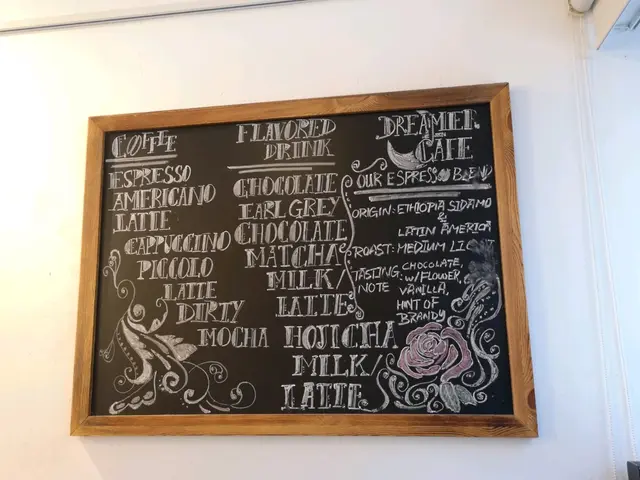 COFFEE
ESPRESSO
AMERICANO
LATTE
CAPPUCCINO
PICCOLO
LATTE
DIRTY
MOCHA
FLAVORED
DRINK
CHOCOLATE
EARL GREY
CHOCOLATE
MATCHA
MILK/
LATTE
HOJICHA
MILK/
LATTE
DREAMIER
CAFE
OUR ESPRESSO BLEND
ORIGIN: ETHIOPIA SIDAMO
&
LATIN AMERICA
ROAST: MEDIUM
TASTING: CHOCOLATE,
NOTE W/FLOWER,
VANILLA,
HINT OF
BRANDY